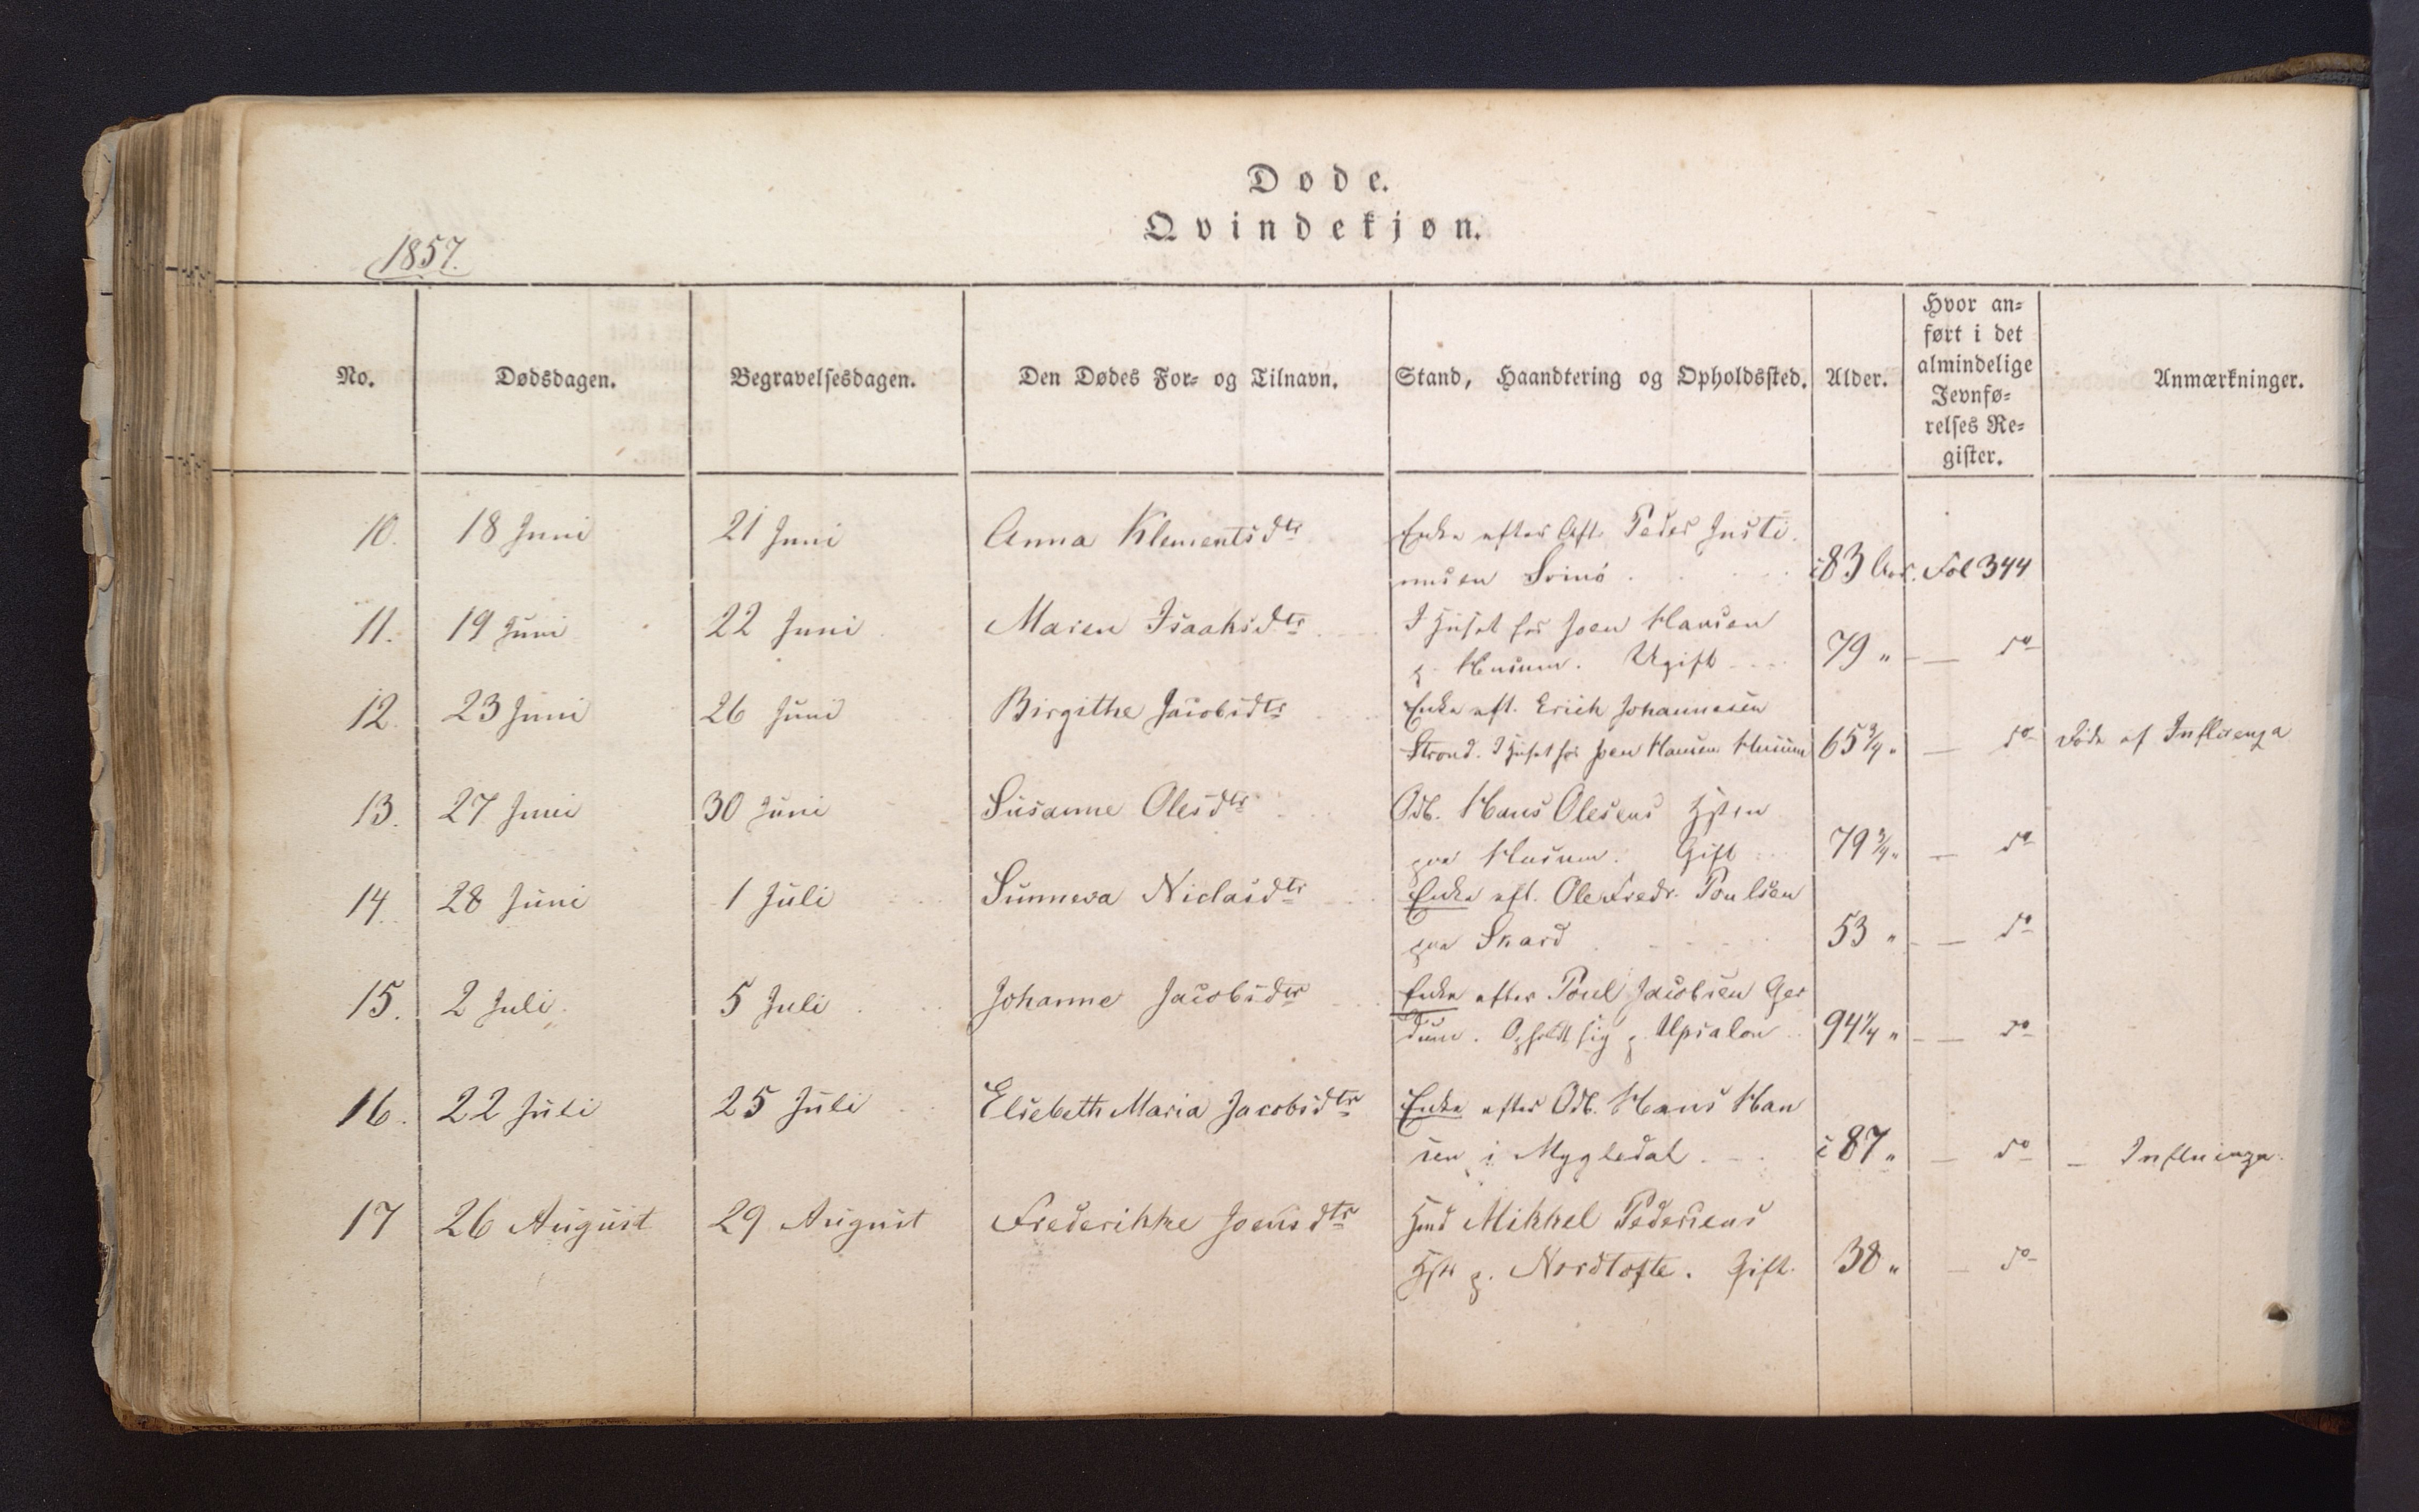 Døde.
Qvindekjøn.
1857.
No. Dødsdagen. Begravelsesdagen. Den Dødes For- og Tilnavn. Stand, Haandtering og Opholdssted. Alder. Hvor an-
ført i det
almindelige
Jevnfø-
relses Re-
gister. Anmærkninger.
10. 18 Juni 21 Juni Anna Klementsdtr Enke efter Aft. Peder Justi
nusen Svinö i 83 Aar. Fol 344
11. 19 Juni 22 Juni Maren Isaaksdtr I Huset hos Joen Hansen
p. Husum. Ugift 79 " — do
12. 23 Juni 26 Juni Birgithe Jacobsdtr Enke eft. Erich Johannesen
Strond. I Huset hos Joen Hansen Husum 65 3/4 " — do Døde af Influenza
13. 27 Juni 30 Juni Susanne Olesdtr Odb. Hans Olesens Hstru
paa Husum. Gift 79 3/4 " — do
14. 28 Juni 1 Juli Sunneva Niclasdtr Enke eft. Ole Fredr. Poulsen
paa Skard 53 " — do
15. 2 Juli 5 Juli Johanne Jacobsdtr Enke efter Poul Jacobsen Ger
dum. Opholdt sig p. Upsalon 94 1/4 " — do
16. 22 Juli 25 Juli Elsebeth Maria Jacobsdtr Enke efter Odb. Hans Han
sen i Mygledal i 87 " — do — Influenza.
17 26 August 29 August Frederikke Joensdtr Hmd Mikkel Pedersens
Hstr p. Nordtofte. Gift. 38 " — do